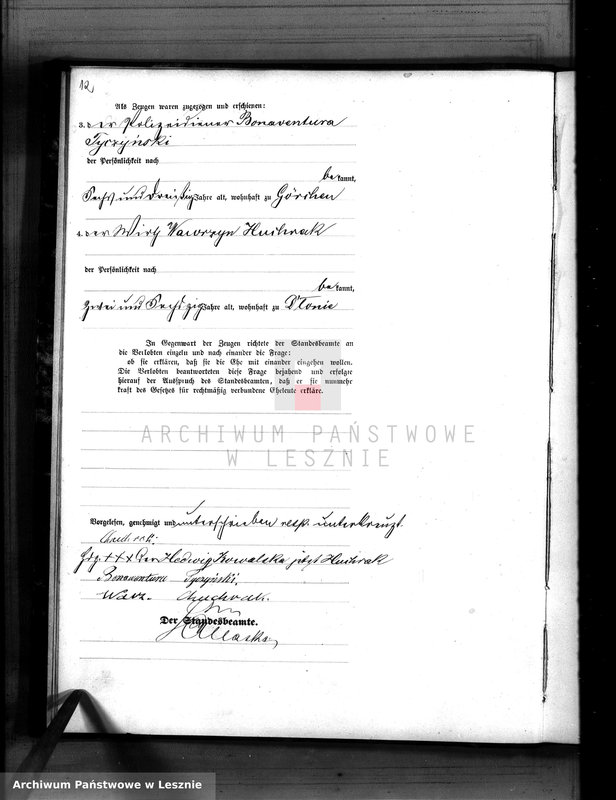 12,
Als Zeugen waren zugezogen und erschienen:
3. der Polizeidiener Bonaventura
Tyczyński
der Persönlichkeit nach
bekannt,
Sechs und dreißig Jahre alt, wohnhaft zu Görchen
4. der Wirth Wawrzyn Huchrak
der Persönlichkeit nach
bekannt,
zwei und Sechszig Jahre alt, wohnhaft zu Dłonie
In Gegenwart der Zeugen richtete der Standesbeamte an
die Verlobten einzeln und nach einander die Frage:
ob sie erklären, daß sie die Ehe mit einander eingehen wollen.
Die Verlobten beantworteten diese Frage bejahend und erfolgte
hierauf der Ausspruch des Standesbeamten, daß er sie nunmehr
kraft des Gesetzes für rechtmäßig verbundene Eheleute erkläre.
ARCHIWUM PAŃSTWOWE
W LESZNIE
Vorgelesen, genehmigt und unterschrieben resp. unterkreuzt.
Hdz. +++ der Hedwig Kowalska jetzt Huchrak
Bonaventura Tyczyński.
Wawz. Chuchrak.
Der Standesbeamte.
Archiwum Państwowe w Lesznie